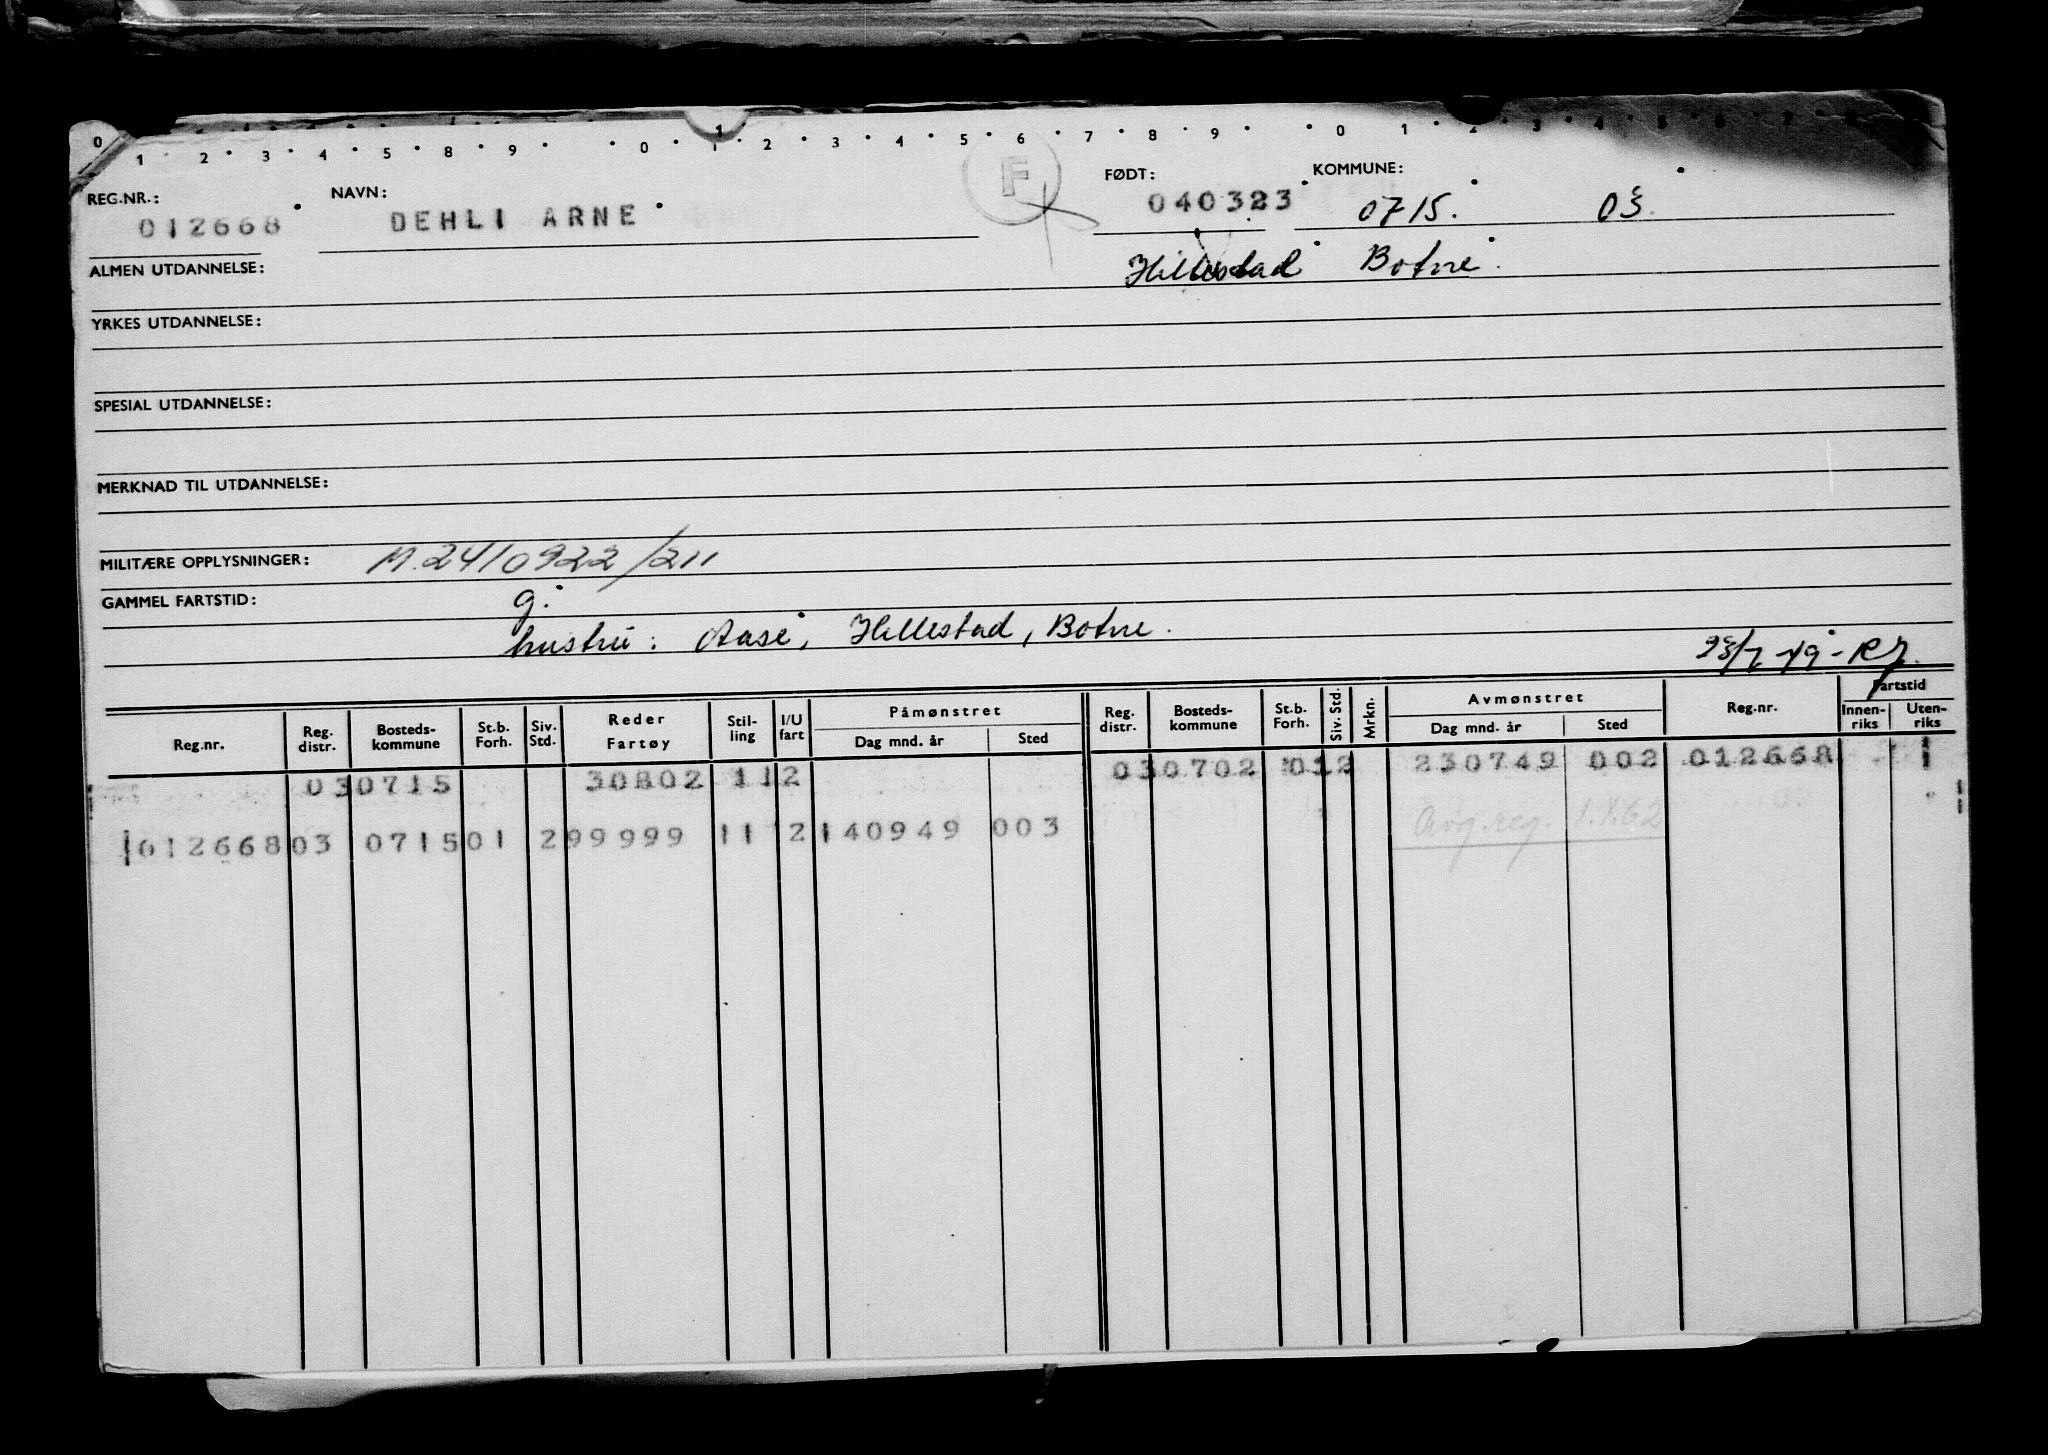 0 1 2 3 4 5 6 7 8 9 0 1 2 3 4 5 6 7 8 9 0 1 2 3 4 5 6 7
REG.NR.: NAVN: F FØDT: KOMMUNE:
012668 DEHLI ARNE 040323 0715. 03.
ALMEN UTDANNELSE: Hillestad Botne.
YRKES UTDANNELSE:
SPESIAL UTDANNELSE:
MERKNAD TIL UTDANNELSE:
MILITÆRE OPPLYSNINGER: M.2410922/211
GAMMEL FARTSTID: g.
hustru: Aase, Hillestad, Botne.
23/7-49-
Reg.nr. Reg. distr. Bosteds-kommune St.b. Forh. Siv. Std. Reder Fartøy Stil-ling I/U fart Påmønstret Dag mnd. år Sted Reg. distr. Bosteds-kommune St.b. Forh. Siv. Std. Mrkn. Avmønstret Dag mnd. år Sted Reg.nr. Fartstid Innen-riks Uten-riks
030715 30802 112 030702 012 230749 002 012668 1
01266803 071501 299999 11 2140949 003 Avg.reg. 1.1.62